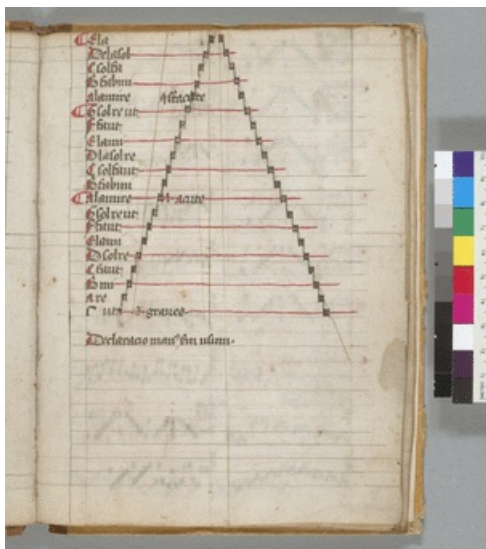 Ela
Delasol
Csolfa
bfabmi
alamire
Gsolreut
ffaut
Elami
Dlasolre
Csolfaut
bfabmi
alamire acute
Gsolreut
ffaut
Elami
Dsolre
Cfaut
bmi
are
Γ ut graves
Declaracio man⁹ usum